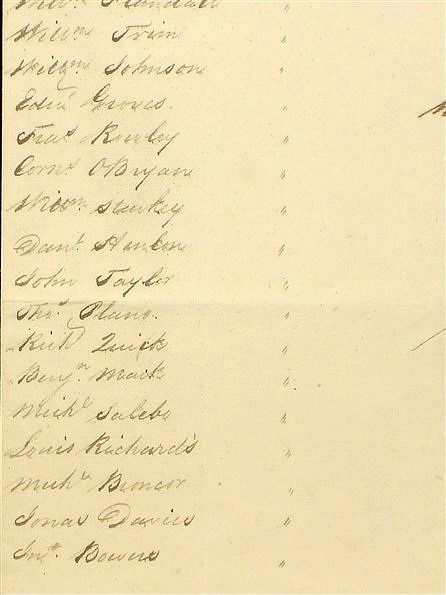 Randall "
Willm Trim "
Willm Johnson "
Edwd Groves. "
Fras Rowley "
Corns OBryan "
Willm Starkey "
Danl Hanlon "
John Taylor "
Thos Plano. "
Richd Quick "
Benjn Mack "
Michl Salebo "
Louis Richards "
Michl Broncor "
Jonas Davies "
Jno. Bowers "